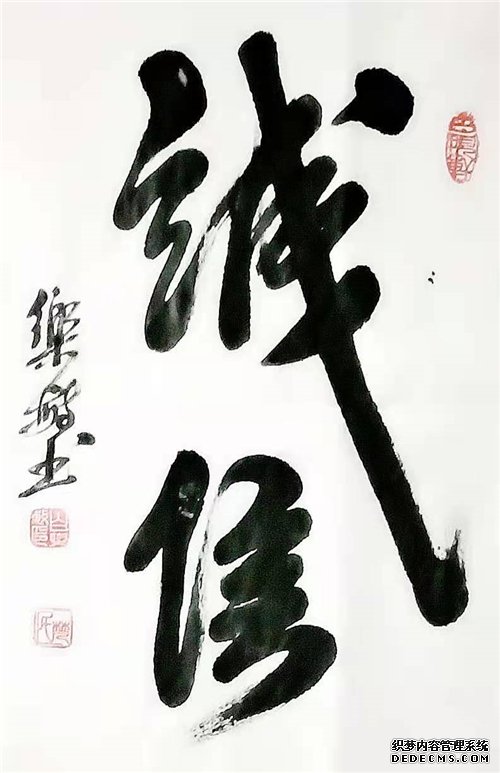 诚信
樂 书
织梦内容管理系统
DEDECMS.COM